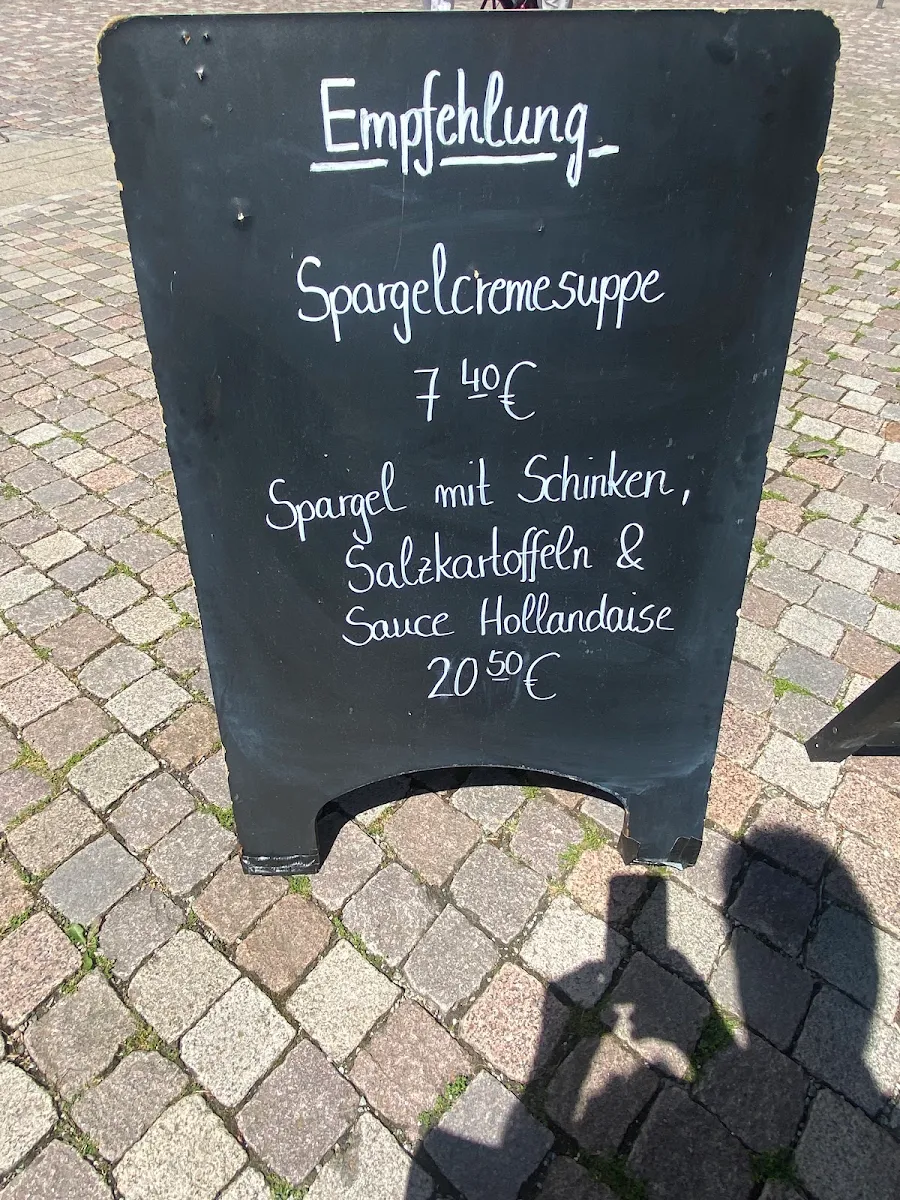 Empfehlung
Spargelcremesuppe
7 40 €
Spargel mit Schinken,
Salzkartoffeln &
Sauce Hollandaise
20 50 €